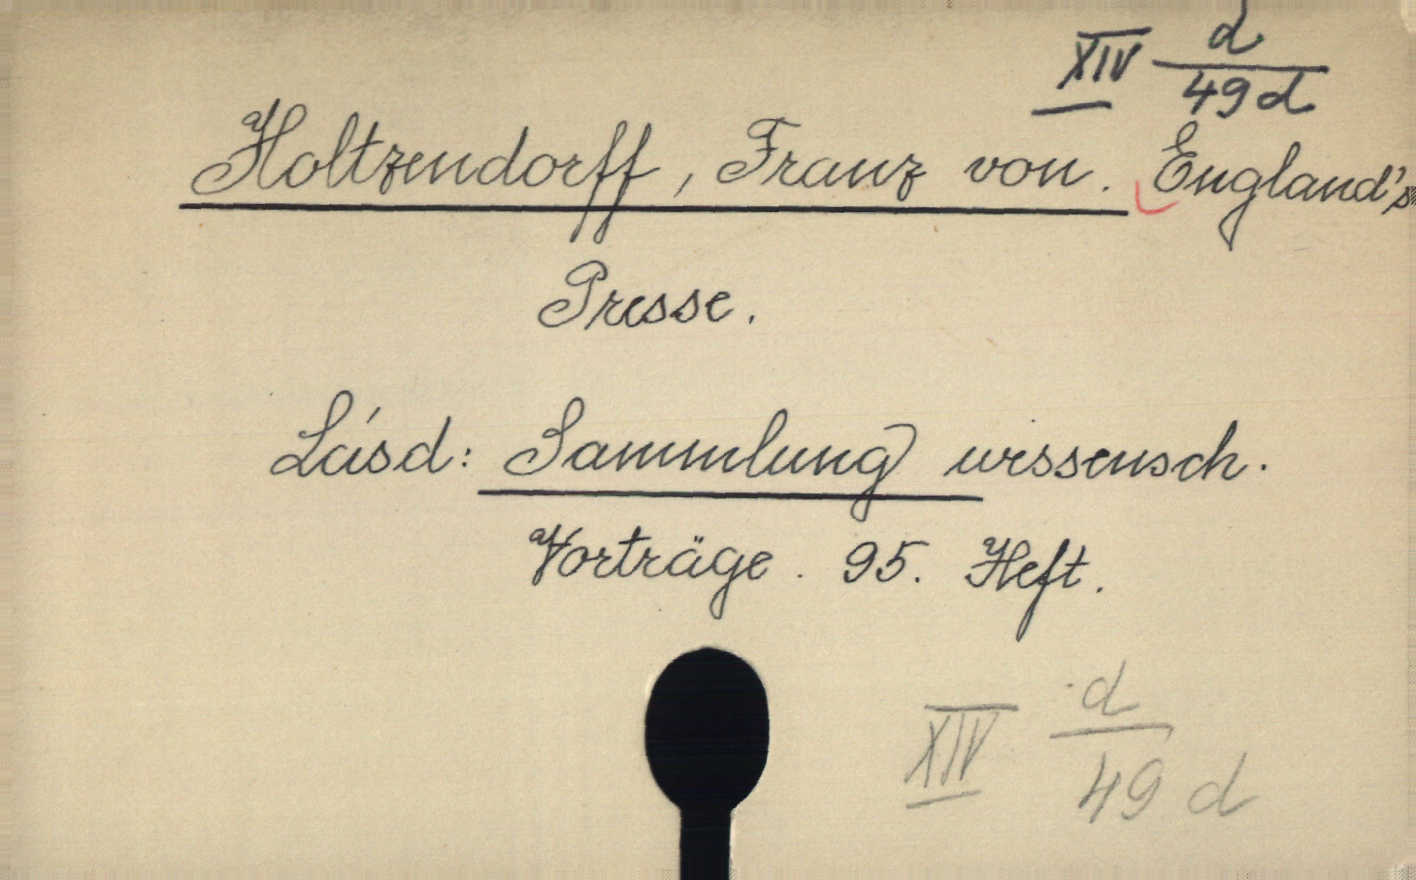 XIV d
49d
Holtzendorff, Franz von. England's
Presse.
Lásd: Sammlung wissensch.
Vorträge. 95. Heft.
XIV d
49 d